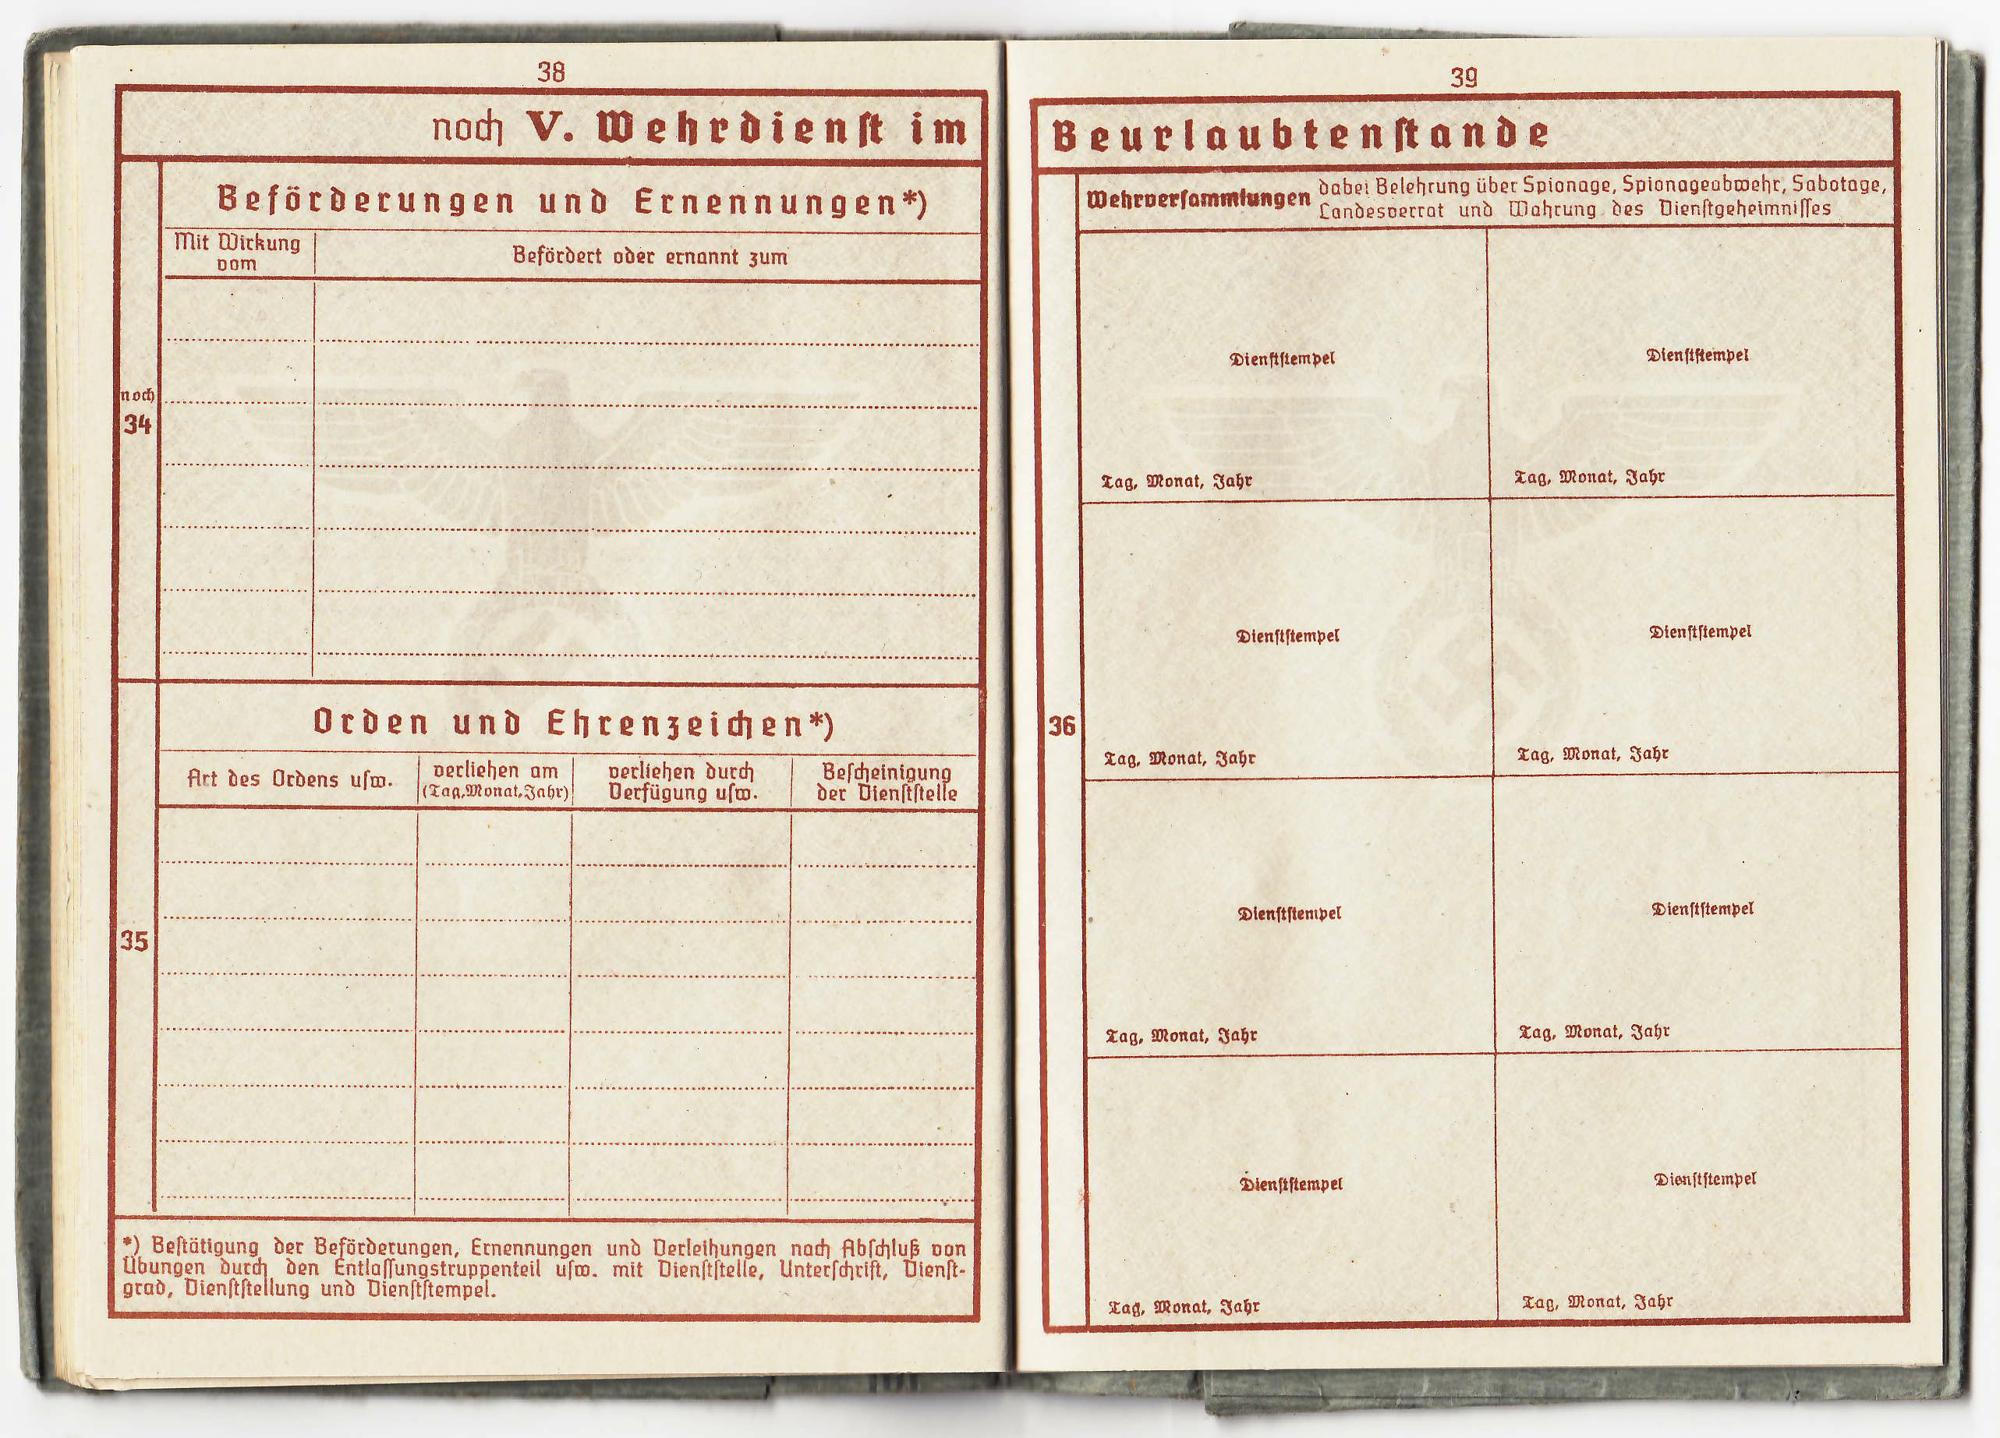 38
noch V. Wehrdienst im
Beförderungen und Ernennungen*)
Mit Wirkung
vom
Befördert oder ernannt zum
noch
34
Orden und Ehrenzeichen*)
Art des Ordens usw.
verliehen am
(Tag, Monat, Jahr)
verliehen durch
Verfügung usw.
Bescheinigung
der Dienststelle
35
*) Bestätigung der Beförderungen, Ernennungen und Verleihungen nach Abschluß von
Übungen durch den Entlassungstruppenteil usw. mit Dienststelle, Unterschrift, Dienst-
grad, Dienststellung und Dienststempel.
39
Beurlaubtenstande
Wehrversammlungen dabei Belehrung über Spionage, Spionageabwehr, Sabotage,
Landesverrat und Wahrung des Dienstgeheimnisses
Dienststempel
Dienststempel
Tag, Monat, Jahr
Tag, Monat, Jahr
Dienststempel
Dienststempel
36
Tag, Monat, Jahr
Tag, Monat, Jahr
Dienststempel
Dienststempel
Tag, Monat, Jahr
Tag, Monat, Jahr
Dienststempel
Dienststempel
Tag, Monat, Jahr
Tag, Monat, Jahr